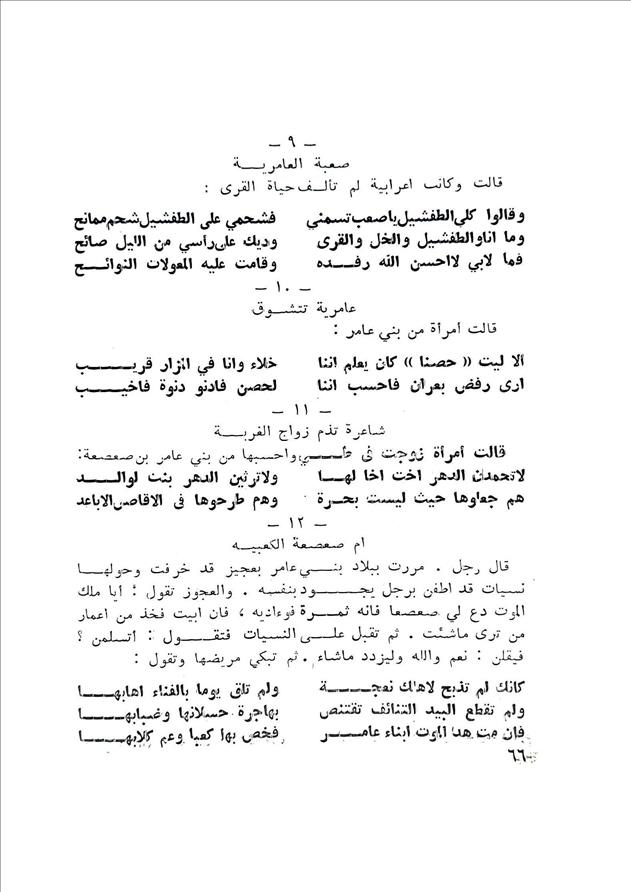 — ٩ —
صعبة العامرية
قالت وكانت اعرابية لم تألف حياة القرى :
وقالوا كلي الطفشيل ياصعب تسمني فشحمي على الطفشيل شحم ممانح
وما انا والطفشيل والخل والقرى وديك على رأسي من الليل صائح
فما لابي لااحسن الله رفده وقامت عليه المعولات النوائح
— ١٠ —
عامرية تتشوق
قالت امرأة من بني عامر :
الا ليت (( حصنا )) كان يعلم اننا خلاء وانا في المزار قريب
ارى رفض بعران فاحسب اننا لحصن فادنو دنوة فاخيب
— ١١ —
شاعرة تذم زواج الغربة
قالت أمرأة زوجت في طي واحسبها من بني عامر بن صعصعة:
لاتحمدان الدهر اخت اخا لها ولاترثين الدهر بنت لوالد
هم جعلوها حيث ليست بحرة وهم طرحوها في الاقاصي الاباعد
— ١٢ —
ام صعصعة الكعبيه
قال رجل . مررت ببلاد بني عامر بعجيز قد خرفت وحولها
نسيات قد اطفن برجل يجود بنفسه . والعجوز تقول : أيا ملك
الموت دع لي صعصعا فانه ثمرة فوءاديه ، فان ابيت فخذ من اعمار
من ترى ماشئت . ثم تقبل على النسيات فتقول : اتسلمن ؟
فيقلن : نعم والله وليزدد ماشاء . ثم تبكي مريضها وتقول :
كانك لم تذبح لاهلك نعجة ولم تلق يوما بالفناء اهابها
ولم تقطع البيد التنائف تقتنص بهاجرة حسلانها وضبابها
فان مت هد الموت ابناء عامر فخص بها كعبا وعم كلابها
٦٦